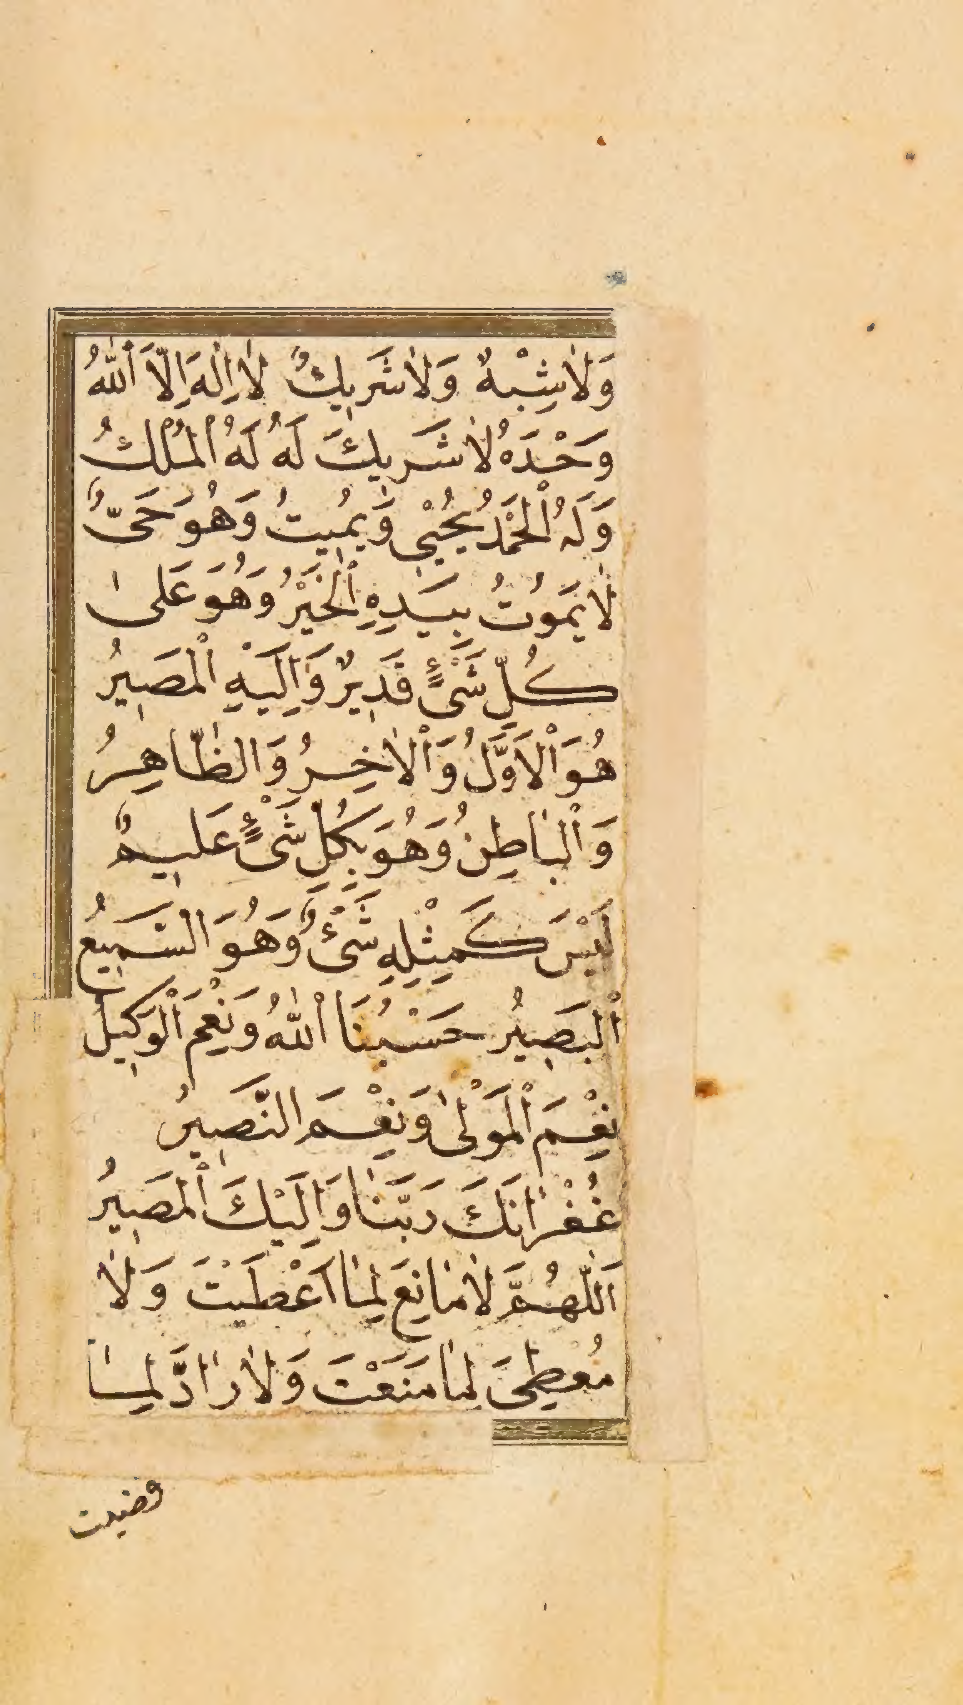 وَلَا شِبْهٌ وَلَا شَرِيكٌ لَا اِلٰهَ اِلَّا اَللّٰهُ
وَحْدَهُ لَا شَرِيكَ لَهُ لَهُ الْمُلْكُ
وَلَهُ الْحَمْدُ يُحْيِى وَيُمِيتُ وَهُوَ حَىٌّ
لَا يَمَوُتُ بِيَدِهِ الْخَيْرُ وَهُوَ عَلىٰ
كُلِّ شَىْءٍ قَدِيرٌ وَاِلَيْهِ الْمَصِيرُ
هُوَ الْاَوَّلُ وَالْاٰخِرُ وَالظَّاهِرُ
وَالْبَاطِنُ وَهُوَ بِكُلِّ شَىْءٍ عَلِيمٌ
لَيْسَ كَمِثْلِهِ شَىْءٌ وَهُوَ السَّمِيعُ
الْبَصِيرُ حَسْبُنَا اللّٰهُ وَنِعْمَ الْوَكِيلُ
نِعْمَ الْمَوْلىٰ وَنِعْمَ النَّصِيرُ
غُفْرَانَكَ رَبَّنَا وَاِلَيْكَ الْمَصِيرُ
اَللّٰهُمَّ لَا مَانِعَ لِمَا اَعْطَيْتَ وَلَا
مُعْطِىَ لِمَا مَنَعْتَ وَلَا رَادَّ لِمَا
قضيت